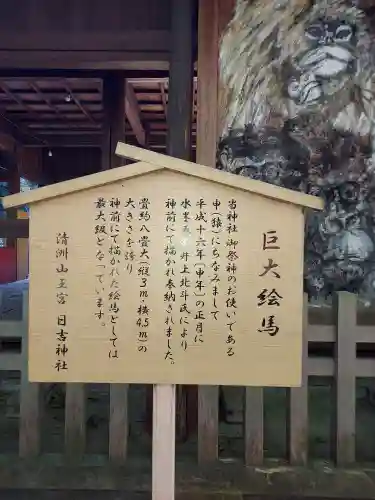 巨大絵馬
当神社 御祭神のお使いである
申(猿)にちなみまして
平成十六年【申年】の正月に
水墨画 井上北斗氏により
神前にて描かれ奉納されました。
畳約八畳大(縦3m・横4.5m)の
大きさを誇り
神前にて描かれた絵馬としては
最大級となっています。
清洲山王宮 日吉神社